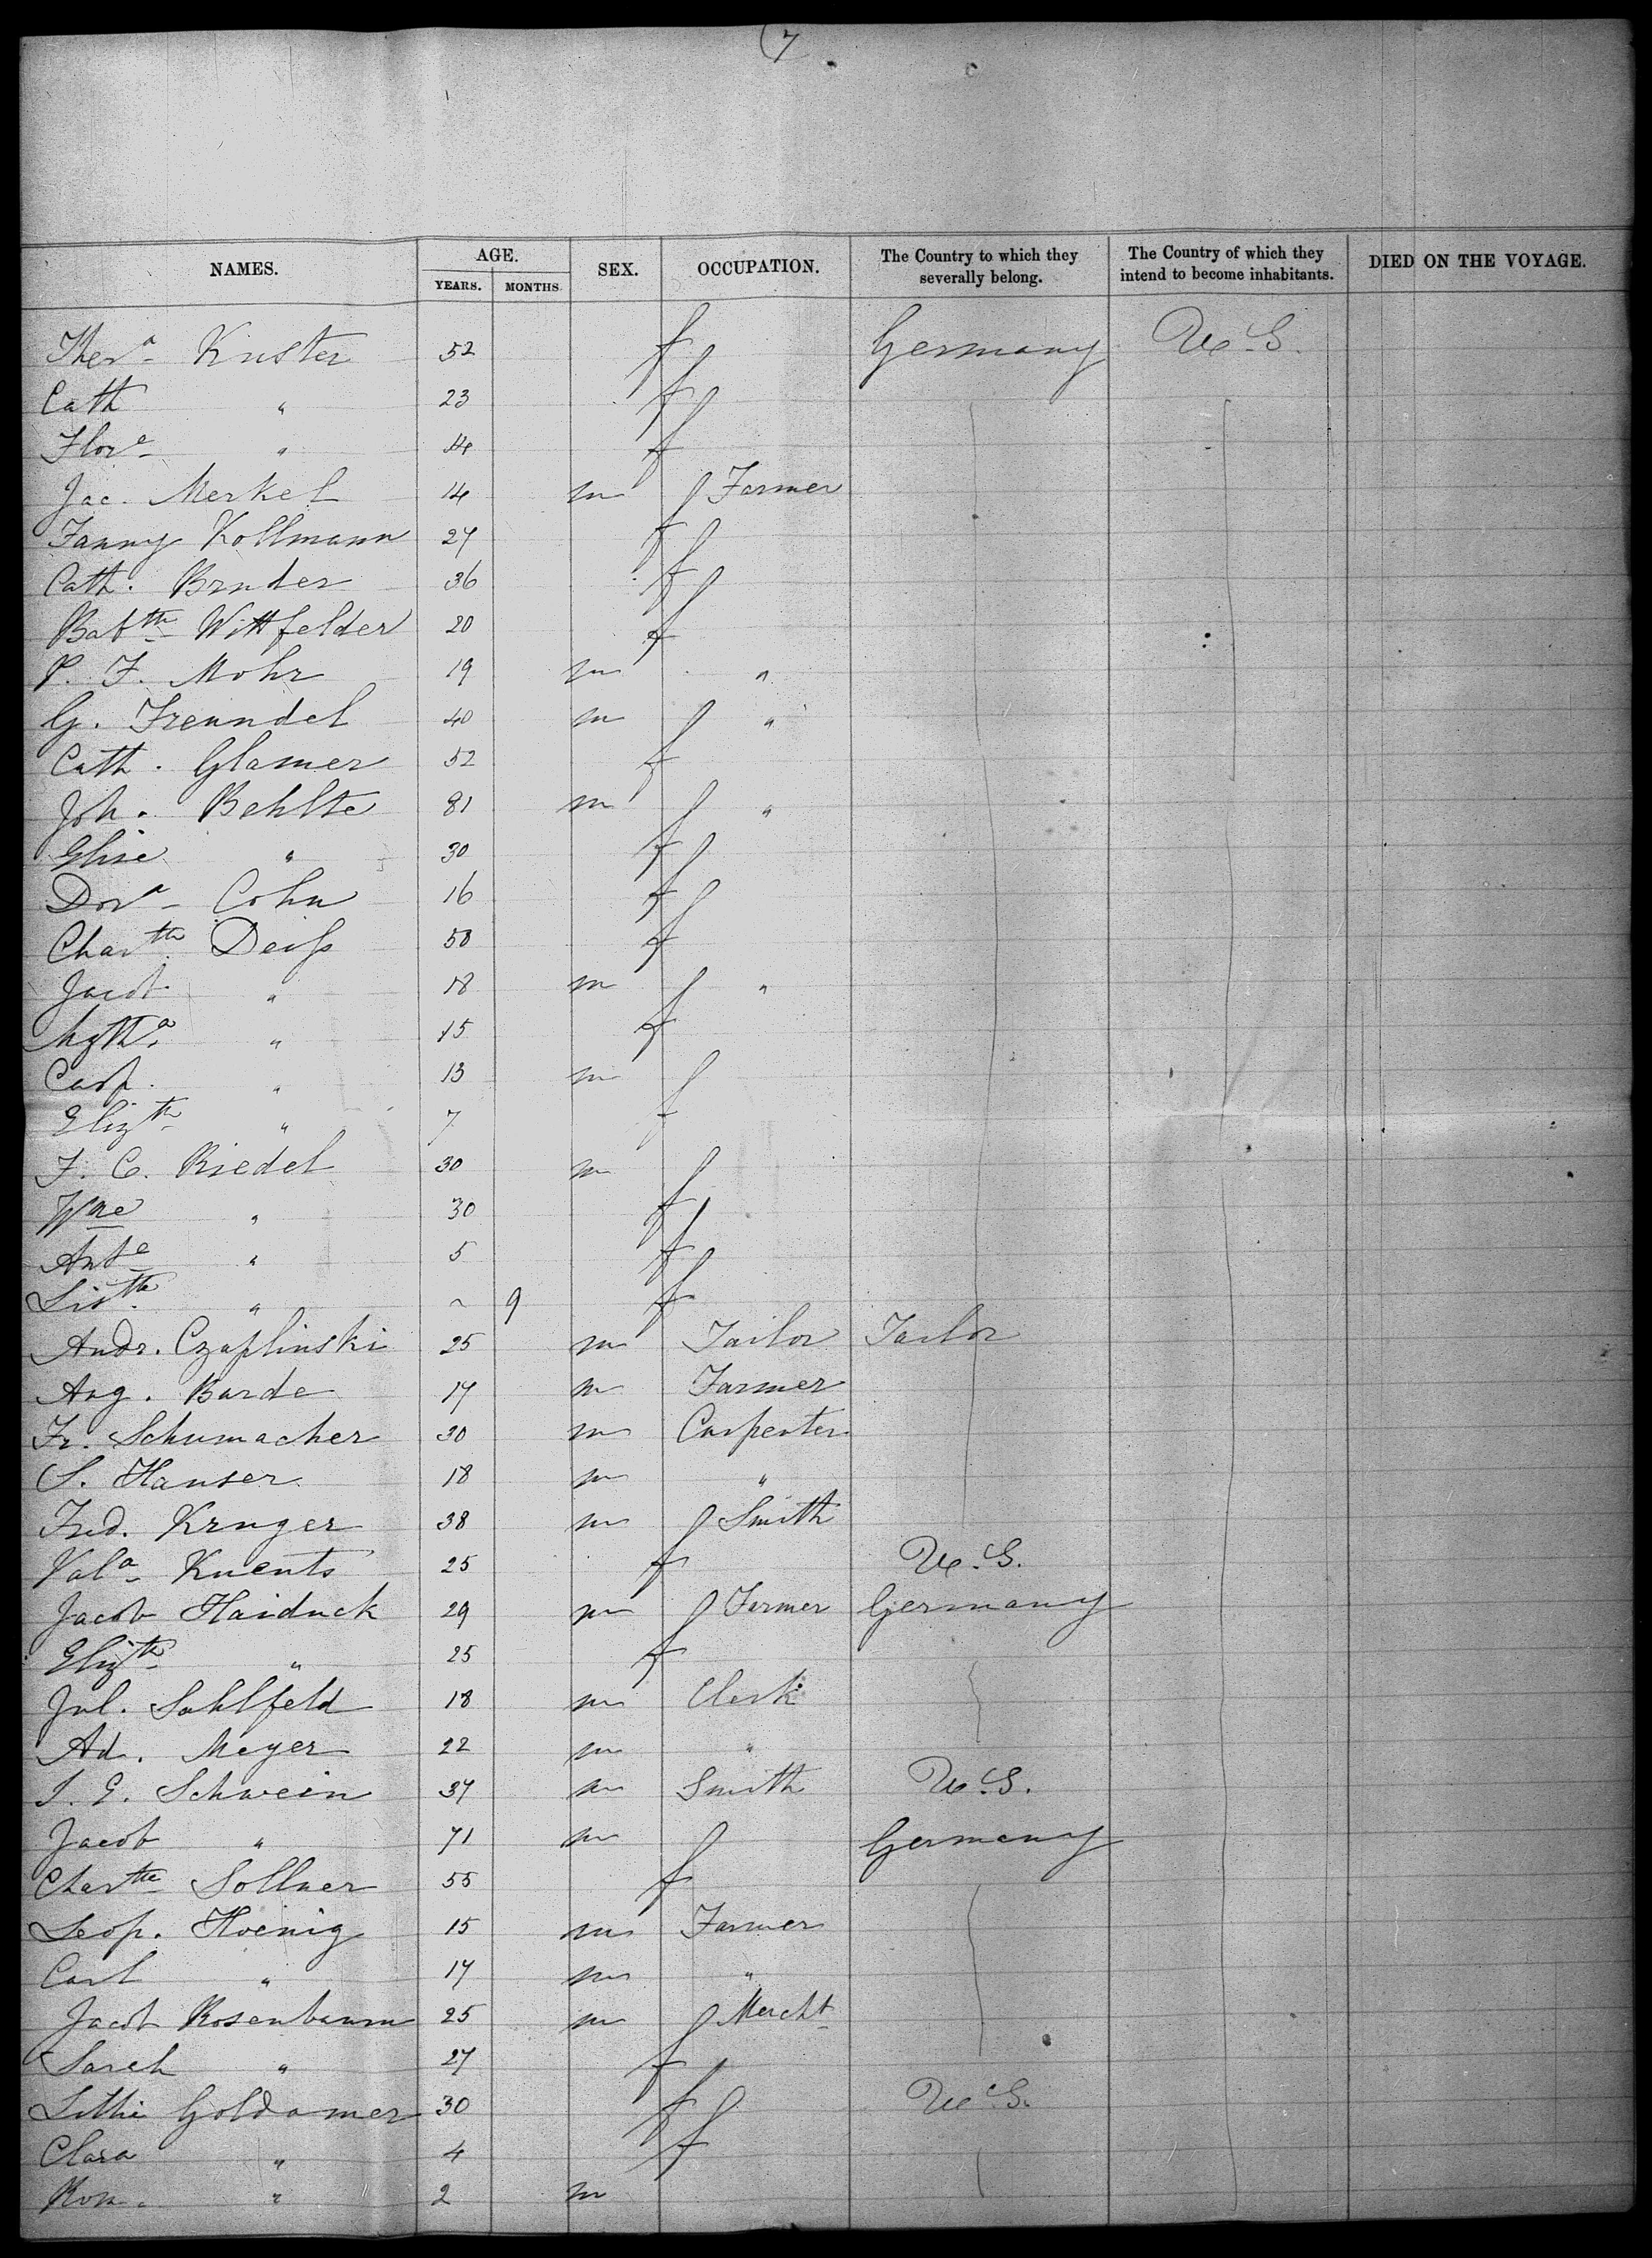 7
NAMES. AGE. YEARS. MONTHS. SEX. OCCUPATION. The Country to which they severally belong. The Country of which they intend to become inhabitants. DIED ON THE VOYAGE.
Thera Kuster 52 f Germany U.S.
Cath " 23 f
Flore " 14 f
Jac. Merkel 14 m Farmer
Fanny Kollmann 27 f
Cath. Bruder 36 f
Babtte Wittfelder 20 f
P. F. Mohr 19 m "
G. Freundel 40 m "
Cath. Glamer 52 f
Joh. Behlte 81 m "
Elise " 30 f
Dora Cohn 16 f
Chartte Deiss 58 f
Jacob " 18 m "
Mgtha " 15 f
Casp. " 13 m
Elizth " 7 f
F. C. Riedel 30 m
Wne " 30 f
Ante " 5 f
Listte " ~ 9 f
Andr. Czaplinski 25 m Tailor Tailor
Aug. Barde 17 m Farmer
Fr. Schumacher 30 m Carpenter
S. Hauser 18 m "
Fred. Kruger 38 m Smith
Vala Kuents 25 f U.S.
Jacob Haiduck 29 m Farmer Germany
Elizth " 25 f
Jul. Sahlfeld 18 m Clerk
Ad. Meyer 22 m "
J. E. Schwein 37 m Smith U.S.
Jacob " 71 m Germany
Chartte Sollner 55 f
Leop. Hoenig 15 m Farmer
Carl " 17 m "
Jacob Rosenbaum 25 m Mercht
Sarah " 27 f
Lithi Goldamer 30 f U.S.
Clara " 4 f
" 2 m